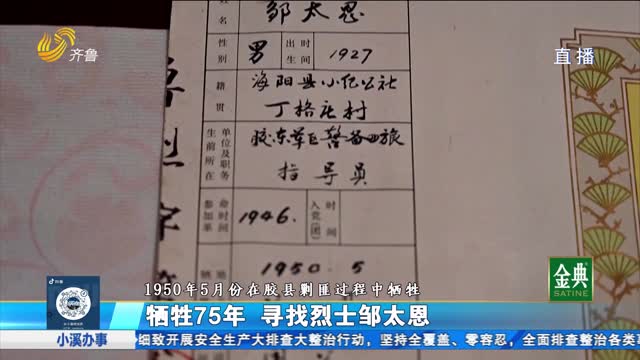 齐鲁
直播
姓名
邹太恩
性别
男
出生
时间
1927
籍贯
海阳县小纪公社
丁格庄村
生前所在
单位及职务
胶东军区警备四旅
指导员
参加革
命时间
1946.
入党(团)
时间
1950.5
1950年5月份在胶县剿匪过程中牺牲
牺牲75年 寻找烈士邹太恩
金典
SATINE
小溪办事
细致开展安全生产大排查大整治行动，坚持全覆盖、零容忍，全面排查整治各类